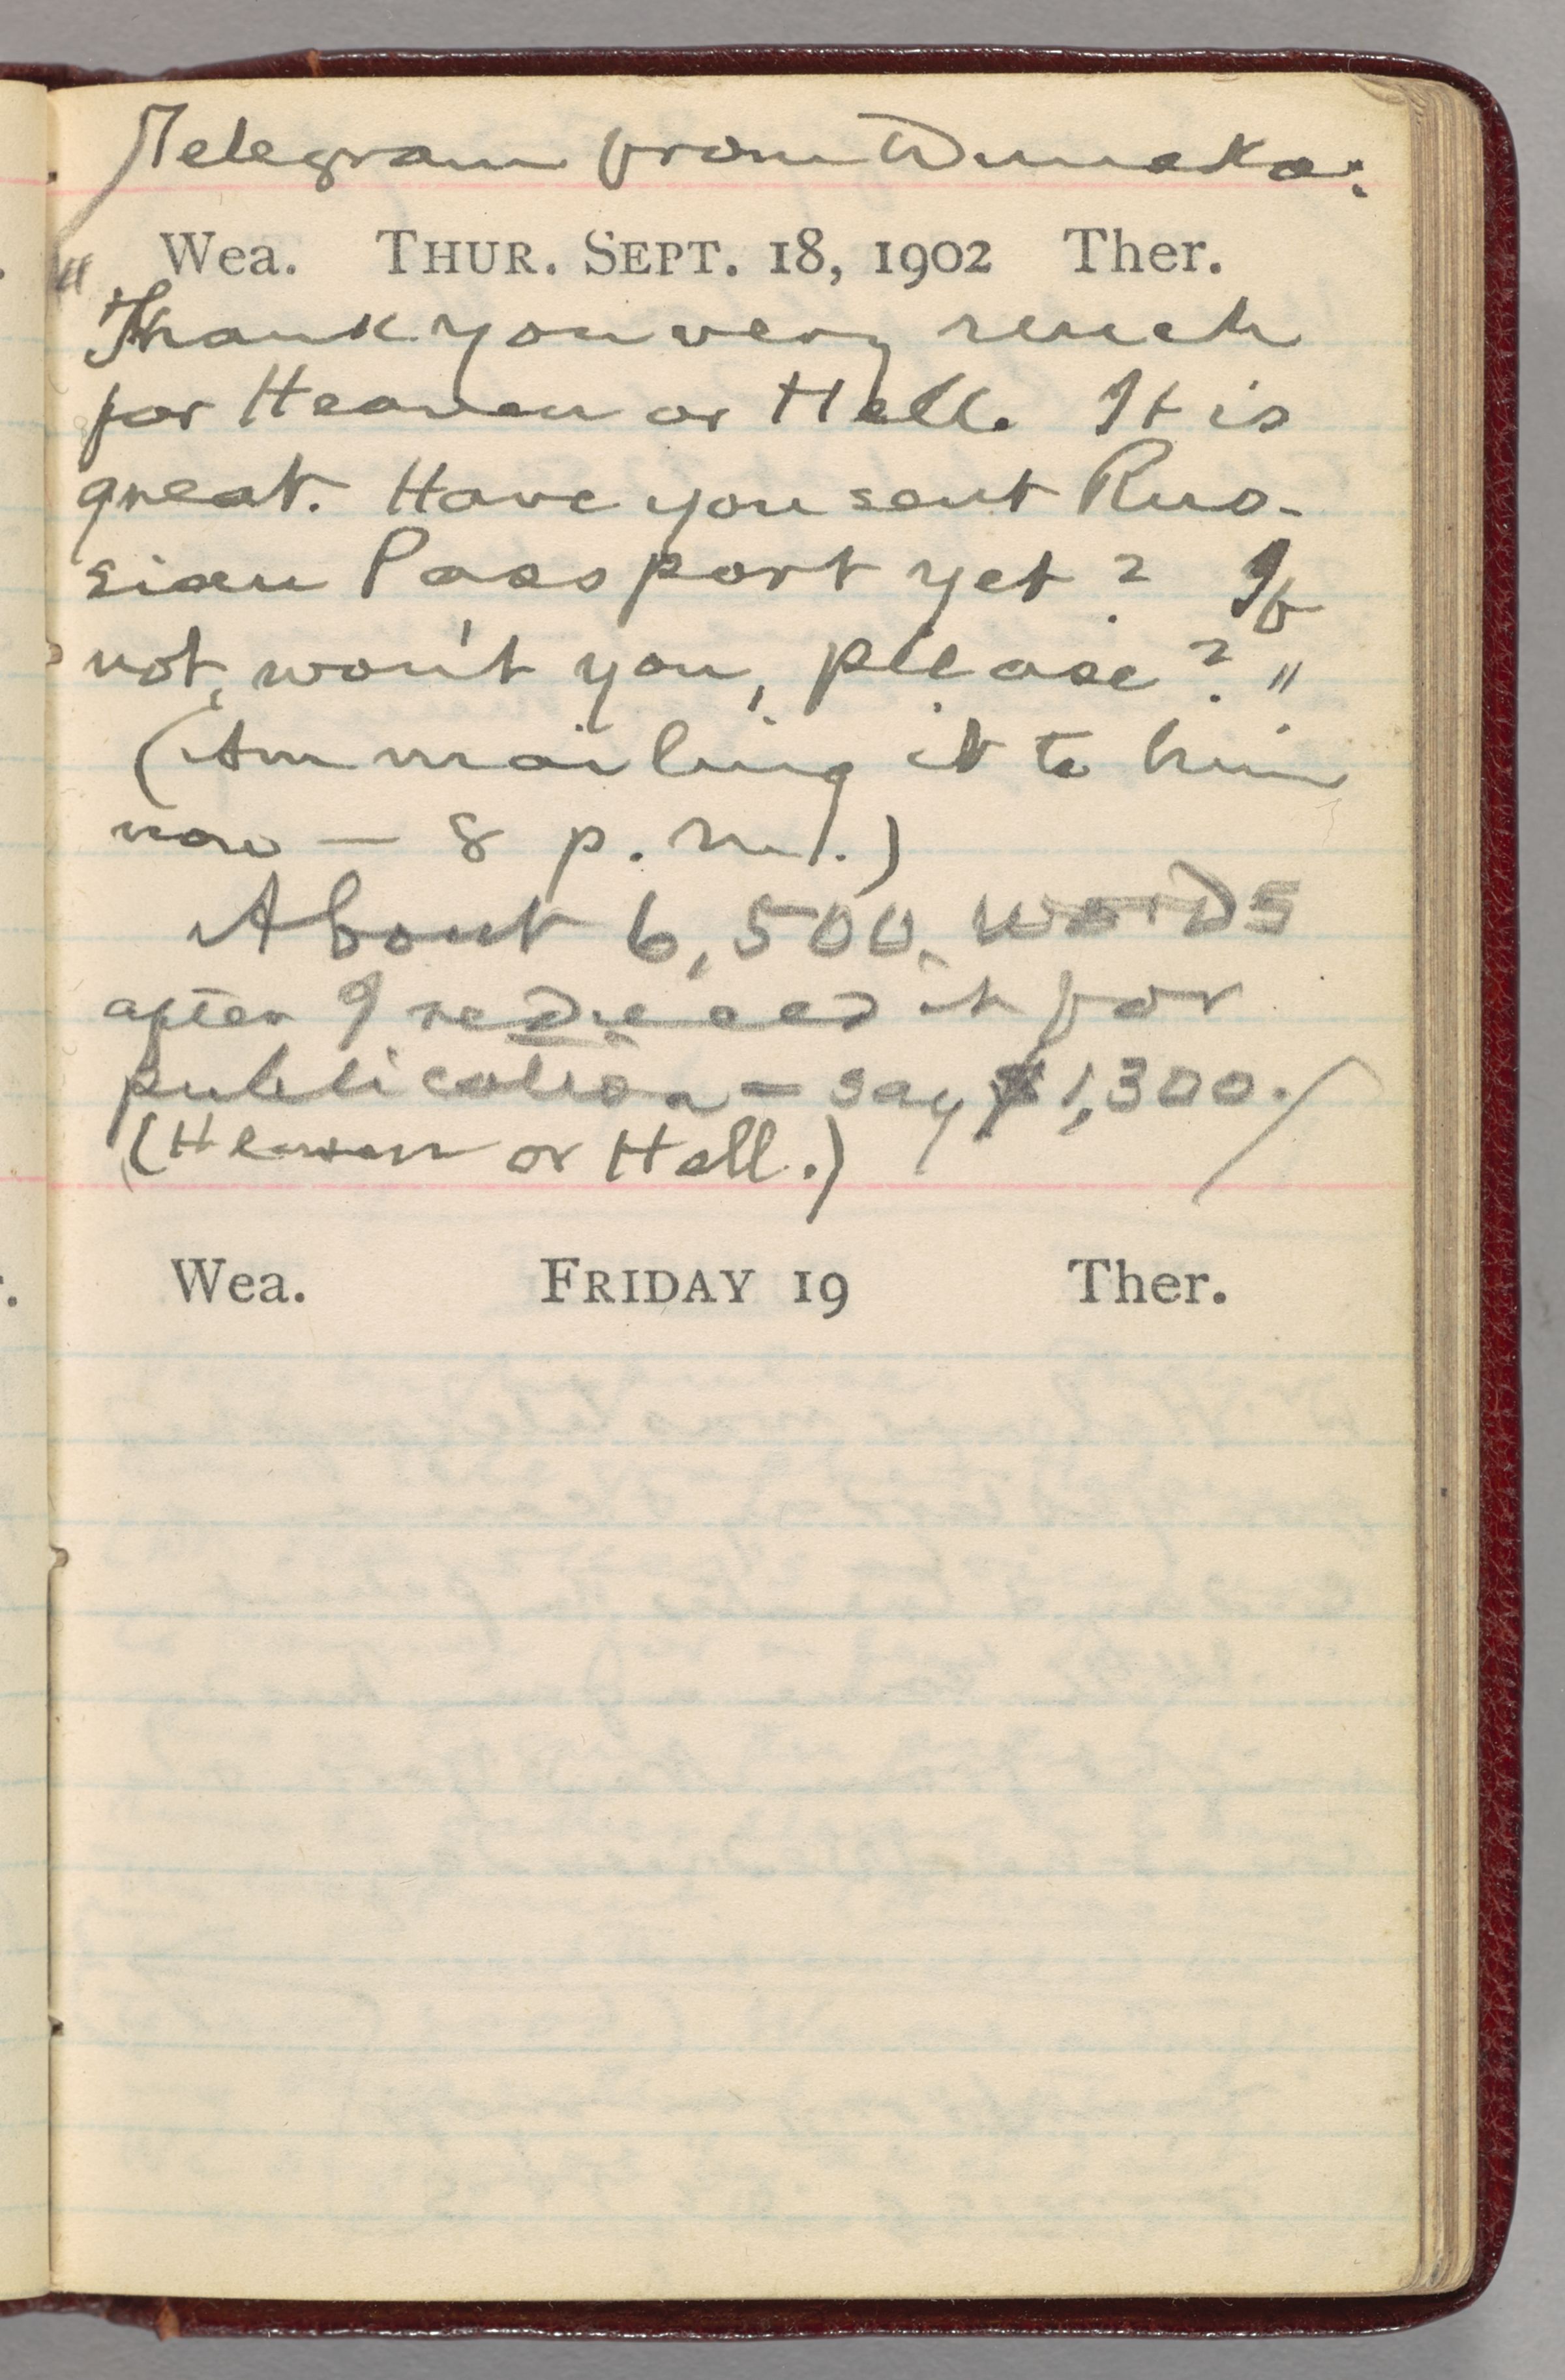 Telegram from Duneka:
Wea. THUR. SEPT. 18, 1902 Ther.
"Thank you very much
for Heaven or Hell. It is
great. Have you sent Rus-
sian Passport yet? If
not, won't you, please?"
(Am mailing it to him
now — 8 p.m.)
About 6,500 words
after I reduced it for
publication — say $1,300.
(Heaven or Hell.)
Wea. FRIDAY 19 Ther.